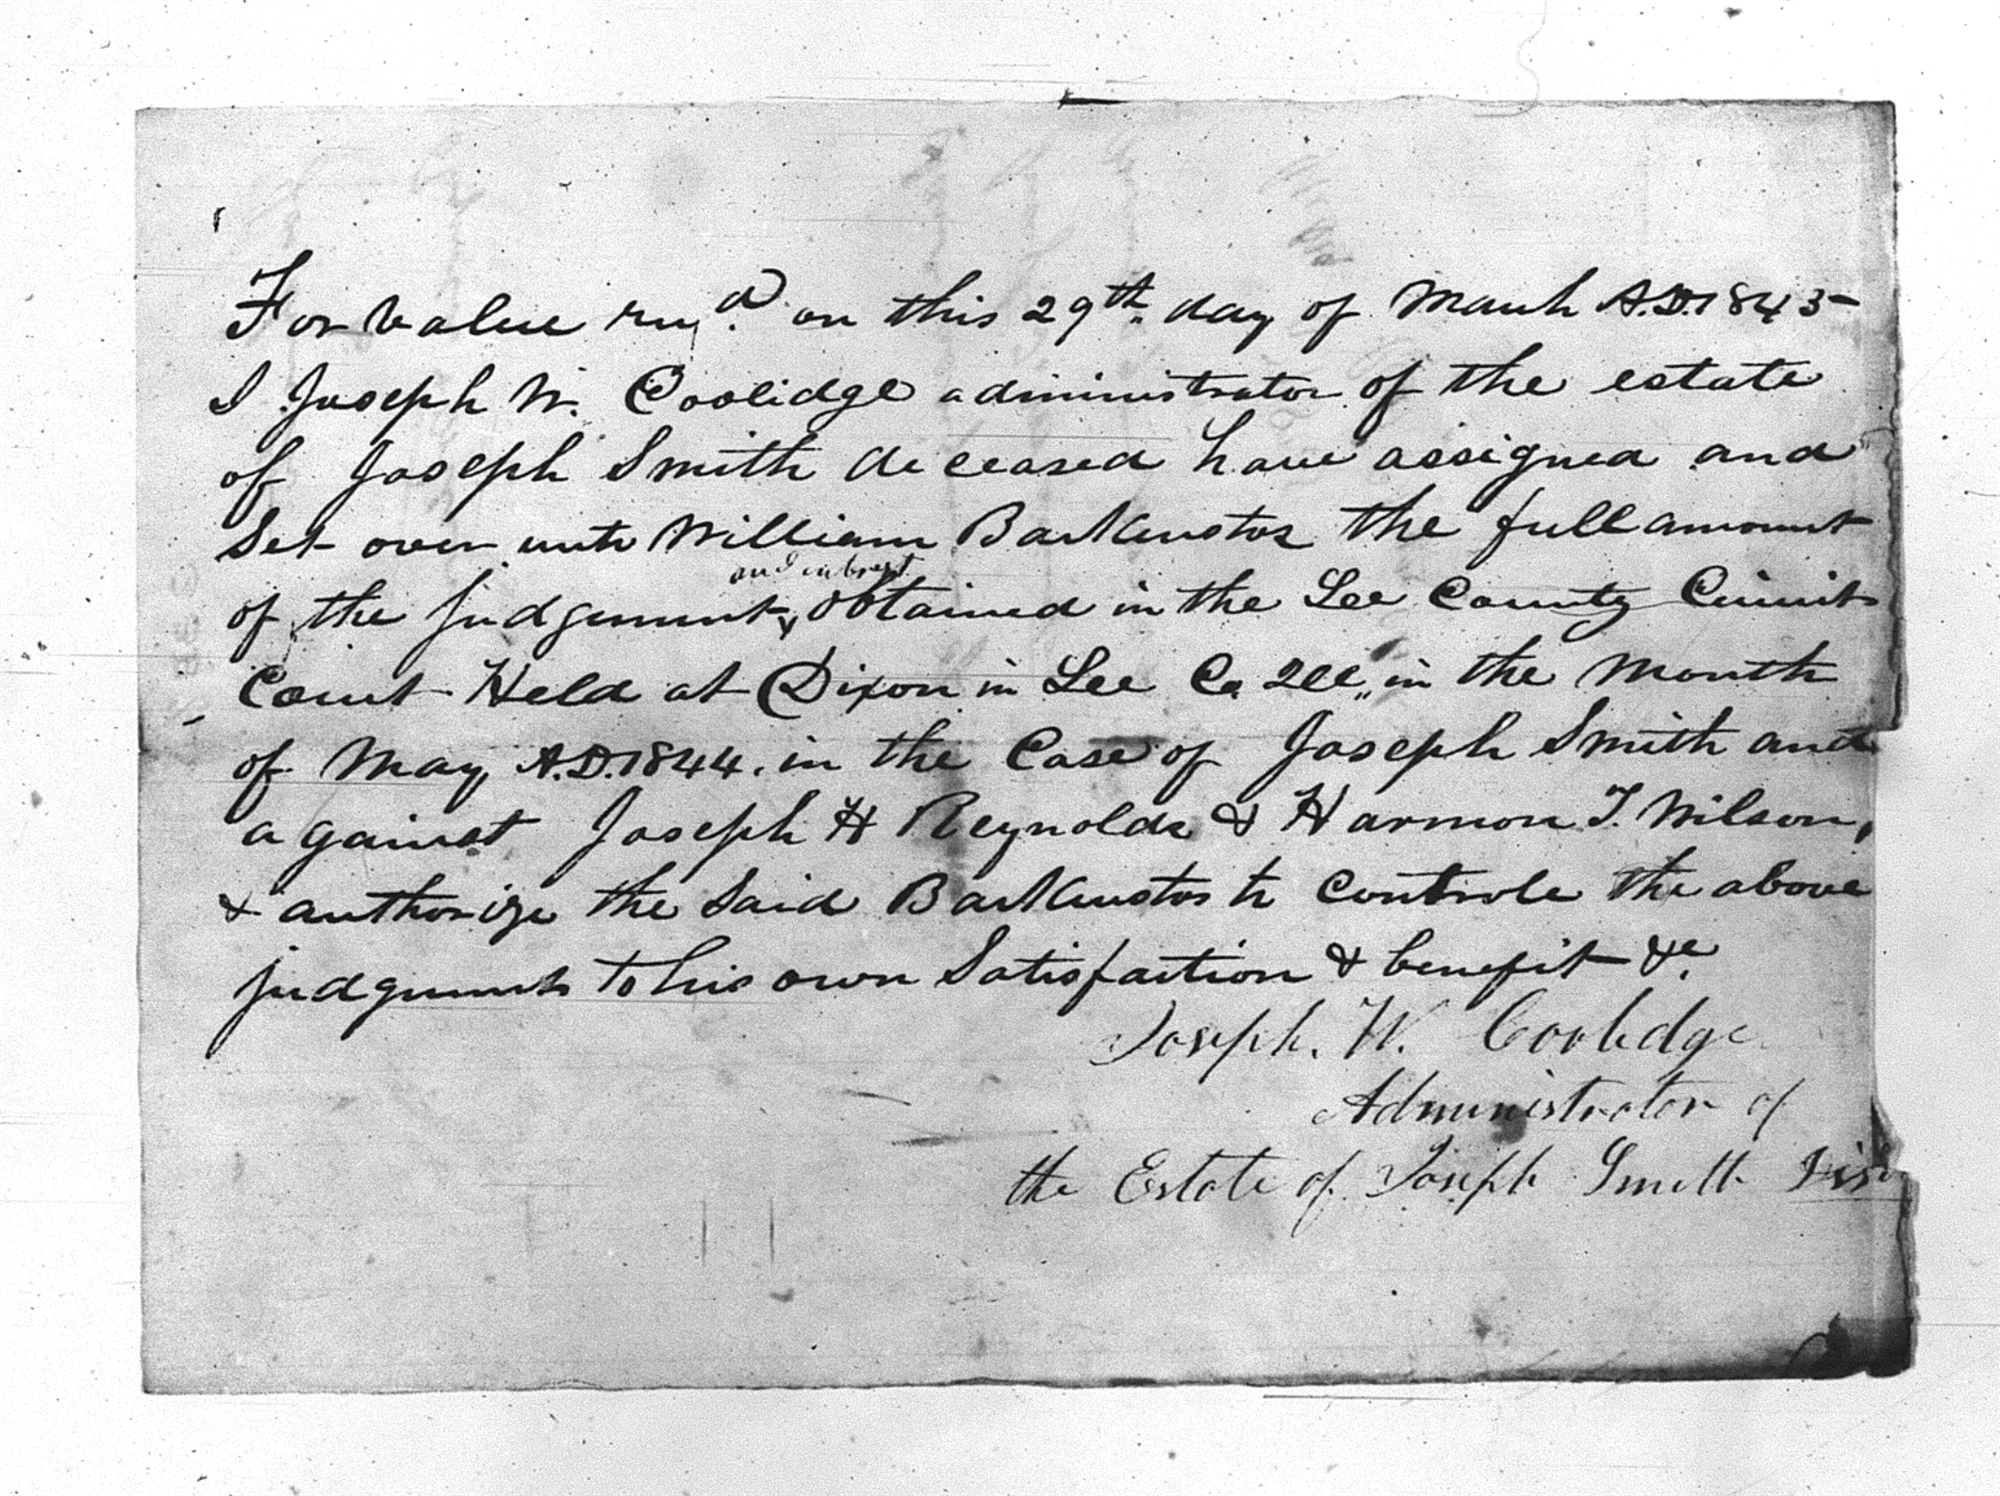 For value rec,d. on this 29th. day of March A.D. 1845
I Joseph W. Coolidge administrator of the estate
of Joseph Smith deceased have assigned and
Set over unto William Backenstos the full amount
and intrest
of the judgement obtained in the Lee County Circuit
Court Held at Dixon in Lee Co. Ill,, in the Month
of May A.D. 1844. in the Case of Joseph Smith and
against Joseph H Reynolds & Harmon T. Wilson,
& authorize the Said Backenstos to Controle the above
judgement to his own Satisfaction & benefit &c.
Joseph. W. Coolidge
Administrator of
the Estate of Joseph Smith